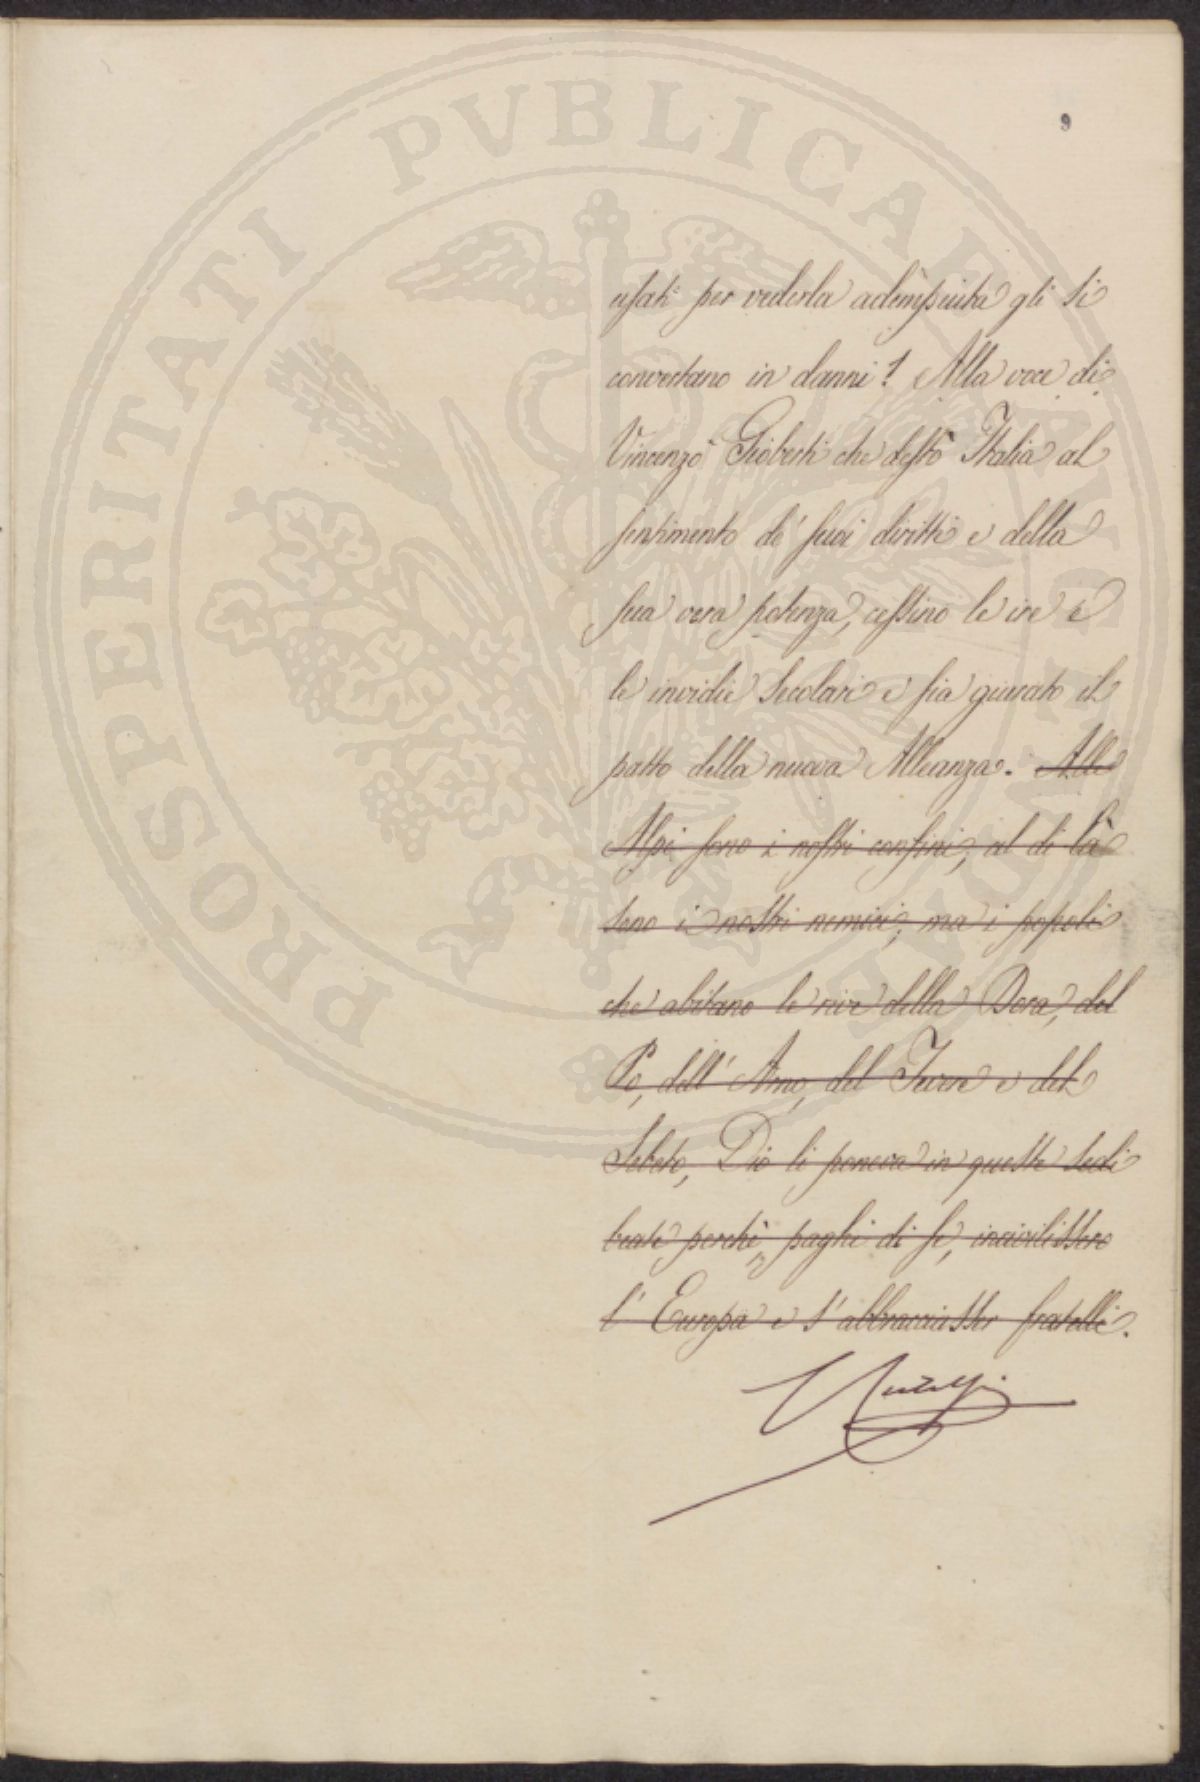 9
usati per vederla adempiuta gli si
convertano in danni! Alla voce di
Vincenzo Gioberti che destò Italia al
sentimento de' suoi diritti e della
sua vera potenza, cessino le ire e
le invidie secolari e sia giurato il
patto della nuova Alleanza. Alle
Alpi sono i nostri confini, al di là
sono i nostri nemici; ma i popoli
che abitano le rive della Dora, del
Po, dell' Arno, del Tevere e del
Sebeto, Dio li poneva in queste sedi
beate perchè, paghi di se, incivilissero
l' Europa e s' abbracciasser fratelli.
PROSPERITATI PVBLICAE AVGENDAE